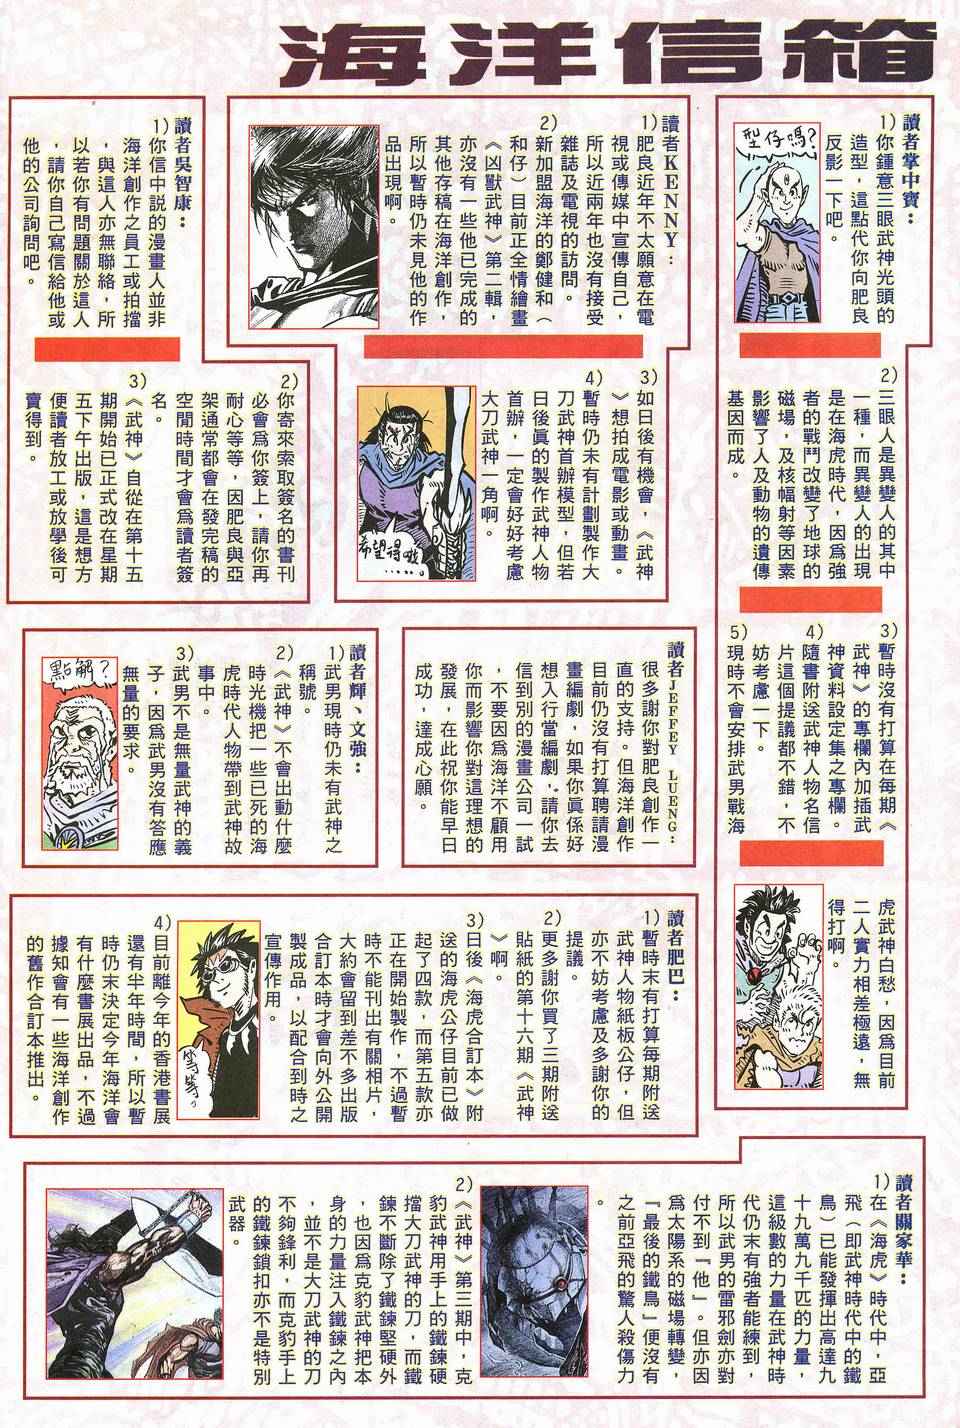 海洋信箱
讀者掌中寶：
1)你鍾意三眼武神光頭的
造型，這點代你向肥良
反影一下吧。
型仔嗎？
2)三眼人是異變人的其中
一種，而異變人的出現
是在海虎時代，因爲強
者的戰鬥改變了地球的
磁場，及核幅射等因素
影響了人及動物的遺傳
基因而成。
3)暫時沒有打算在每期《
武神》的專欄內加插武
神資料設定集之專欄。
4)隨書附送武神人物名信
片這個提議都不錯，不
妨考慮一下。
5)現時不會安排武男戰海
虎武神白愁，因爲目前
二人實力相差極遠，無
得打啊。
讀者KENNY：
1)肥良近年不太願意在電
視或傳媒中宣傳自己，
所以近兩年也沒有接受
雜誌及電視的訪問。
2)新加盟海洋的鄭健和（
和仔）目前正全情繪畫
《凶獸武神》第二輯，
亦沒有一些他已完成的
其他存稿在海洋創作，
所以暫時仍未見他的作
品出現啊。
3)如日後有機會，《武神
》想拍成電影或動畫。
4)暫時仍未有計劃製作大
刀武神首辦模型，但若
日後眞的製作武神人物
首辦，一定會好好考慮
大刀武神一角啊。
希望得啦……
讀者吳智康：
1)你信中説的漫畫人並非
海洋創作之員工或拍擋
，與這人亦無聯絡，所
以若你有問題關於這人
，請你自己寫信給他或
他的公司詢問吧。
2)你寄來索取簽名的書刊
必會爲你簽上，請你再
耐心等等，因肥良與亞
架通常都會在發完稿的
空閒時間才會爲讀者簽
名。
3)《武神》自從在第十五
期開始已正式改在星期
五下午出版，這是想方
便讀者放工或放學後可
賣得到。
讀者JEFFEY LUENG：
很多謝你對肥良創作一
直的支持。但海洋創作
目前仍沒有打算聘請漫
畫編劇，如果你眞係好
想入行當編劇，請你去
信到別的漫畫公司一試
，不要因爲海洋不顧用
你而影響你對這理想的
發展，在此祝你能早日
成功，達成心願。
讀者輝、文強：
1)武男現時仍未有武神之
稱號。
2)《武神》不會出動什麼
時光機把一些已死的海
虎時代人物帶到武神故
事中。
3)武男不是無量武神的義
子，因爲武男沒有答應
無量的要求。
點解？
讀者肥巴：
1)暫時未有打算每期附送
武神人物紙板公仔，但
亦不妨考慮及多謝你的
提議。
2)更多謝你買了三期附送
貼紙的第十六期《武神
》啊。
3)日後《海虎合訂本》附
送的海虎公仔目前已做
起了四款，而第五款亦
正在開始製作，不過暫
時不能刊出有關相片，
大約會留到差不多出版
合訂本時才會向外公開
製成品，以配合到時之
宣傳作用。
等等。
4)目前離今年的香港書展
還有半年時間，所以暫
時仍未決定今年海洋會
有什麼書展出品，不過
據知會有一些海洋創作
的舊作合訂本推出。
讀者關家華：
1)在《海虎》時代中，亞
飛（即武神時代中的鐵
鳥）已能發揮出高達九
十九萬九千匹的力量，
這級數的力量在武神時
代仍未有強者能練到，
所以武男的雷邪劍亦對
付不到『他』。但亦因
爲太陽系的磁場轉變，
『最後的鐵鳥』便沒有
之前亞飛的驚人殺傷力
。
2)《武神》第三期中，克
豹武神用手上的鐵鍊硬
擋大刀武神的刀，而鐵
鍊不斷除了鐵鍊堅硬外
，也因爲克豹武神把本
身的力量注入鐵鍊之內
，並不是大刀武神的刀
不夠鋒利，而克豹手上
的鐵鍊鎖扣亦不是特別
武器。